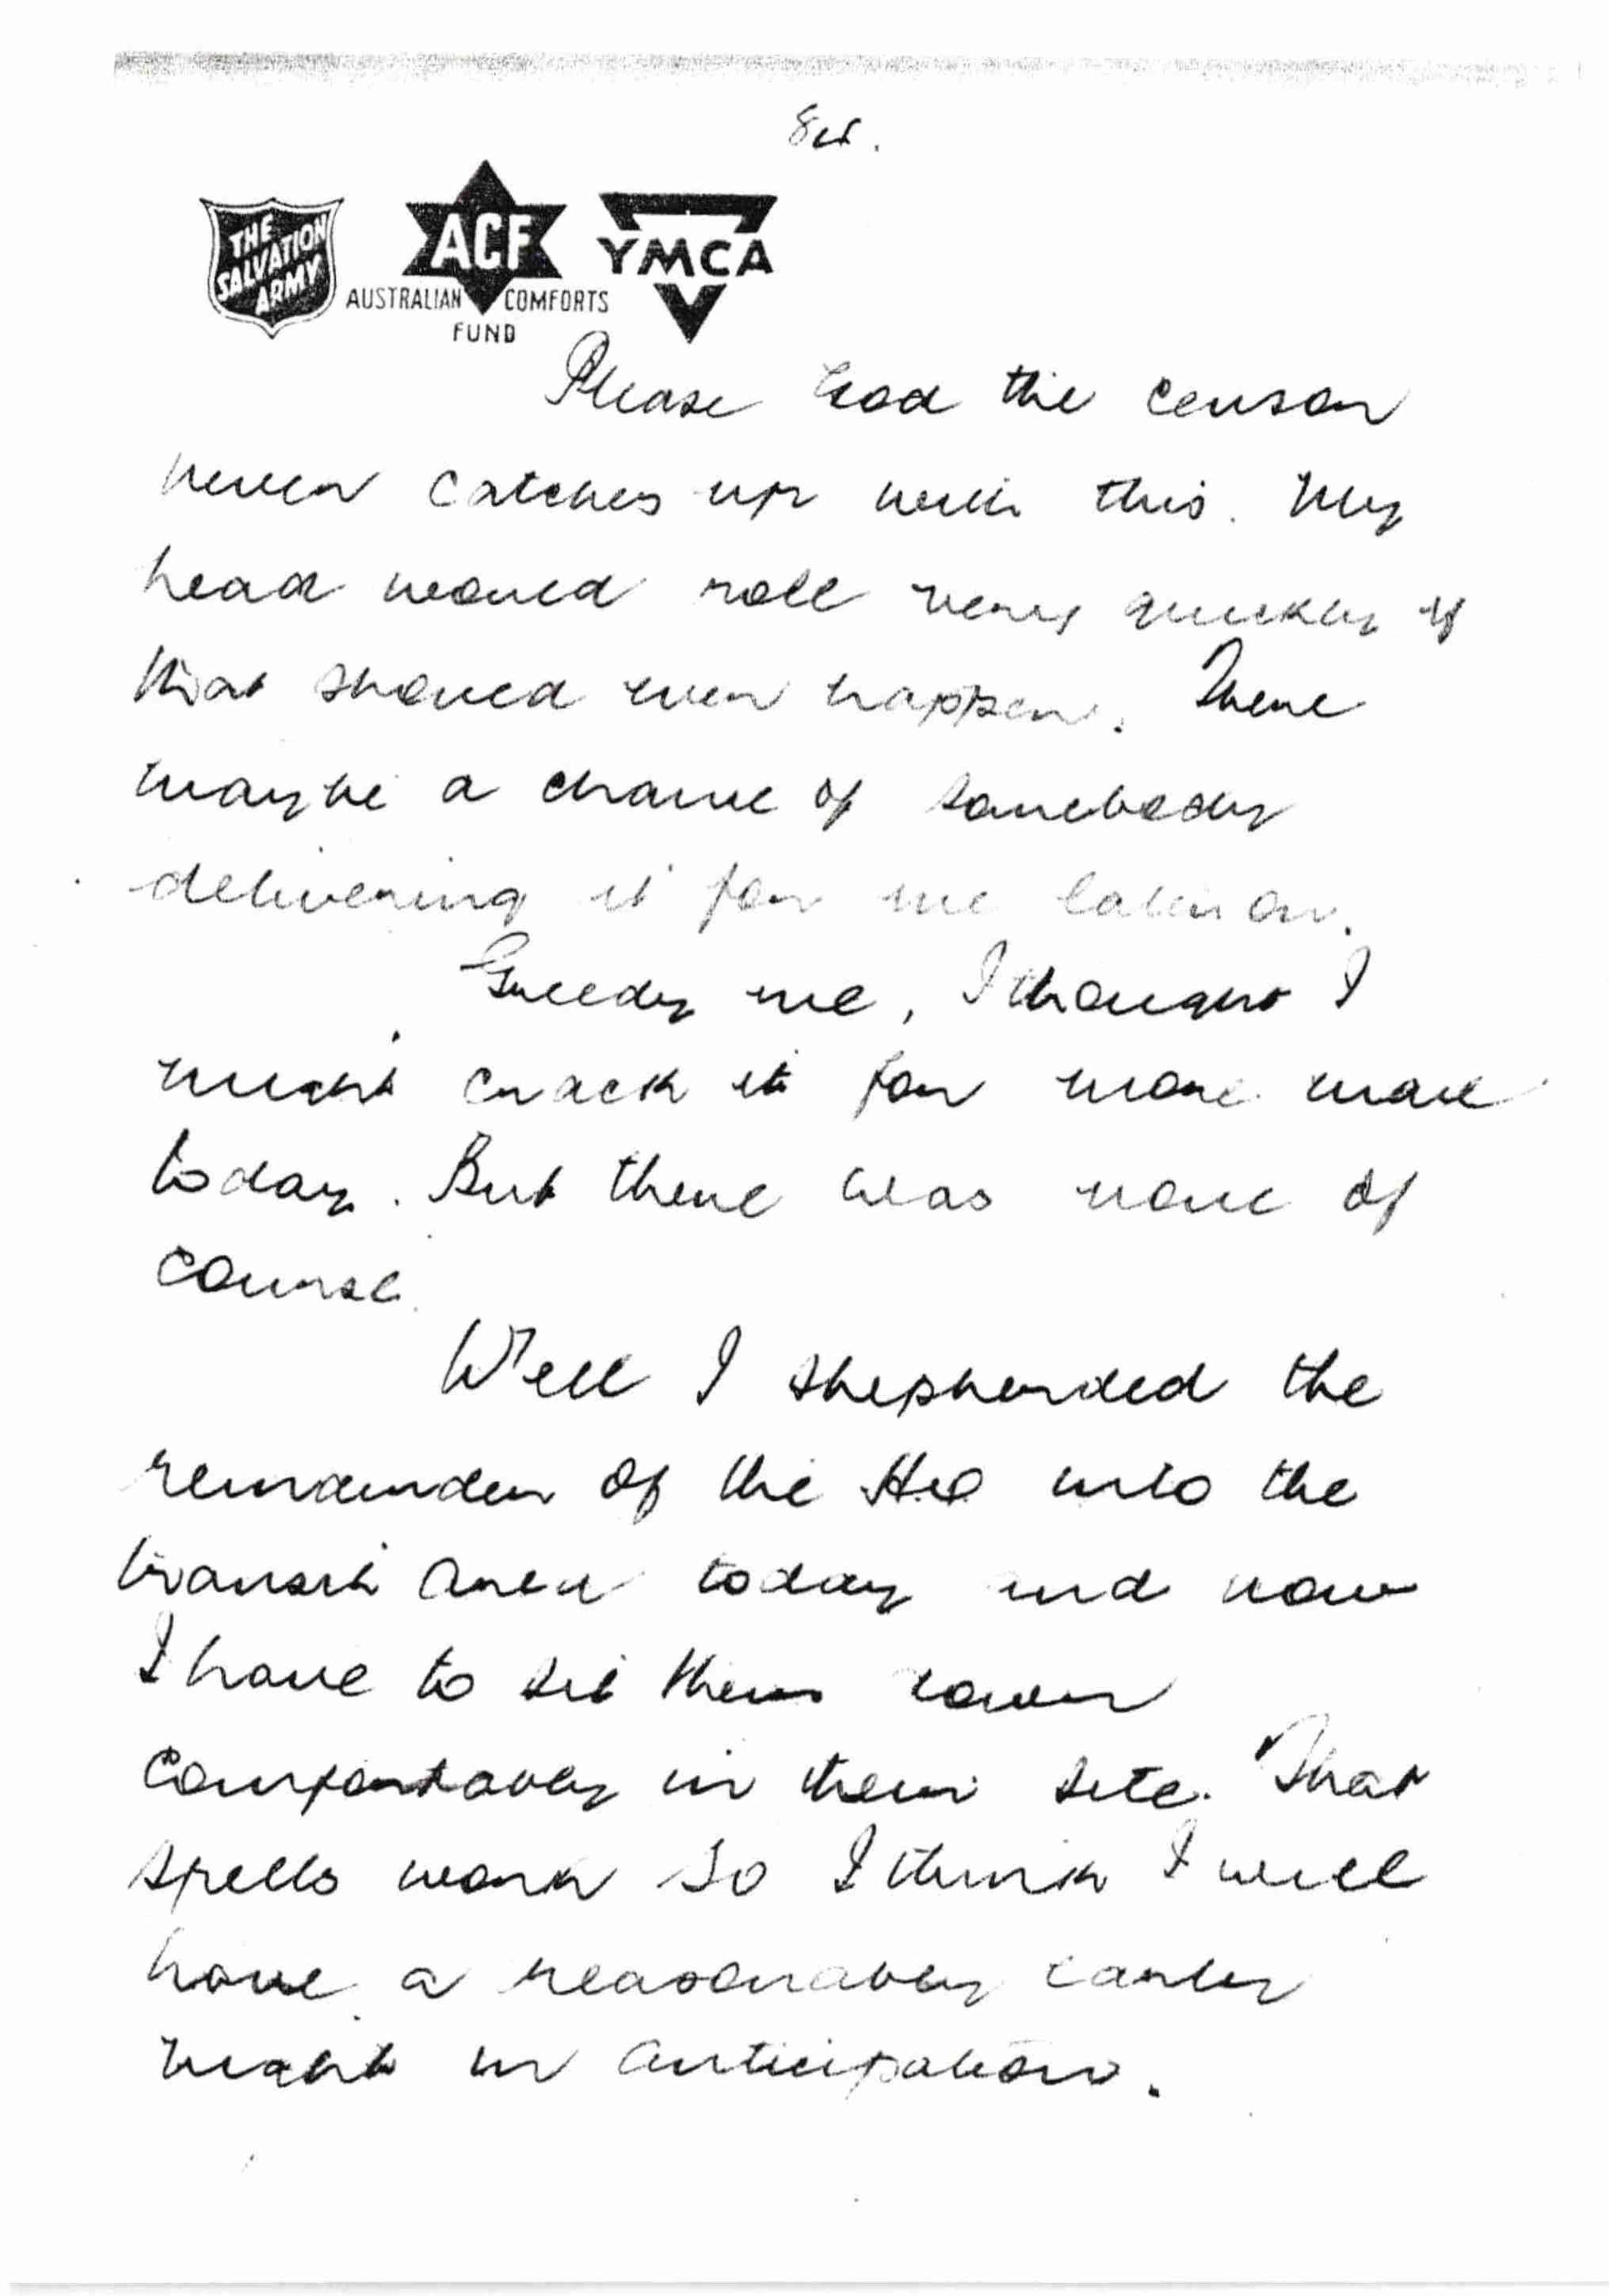 THE SALVATION ARMY
ACF
AUSTRALIAN COMFORTS FUND
YMCA
Please God the censor
never catches up with this. My
head would roll very quickly if
that should ever happen. There
maybe a chance of somebody
delivering it for me later on.
Greedy me, I thought I
might crack it for more mail
today. But there was none of
course.
Well I shepherded the
remainder of the H.Q. into the
transit area today and now
I have to set them down
comfortably in their site. That
spells work so I think I will
have a reasonably early
night in anticipation.